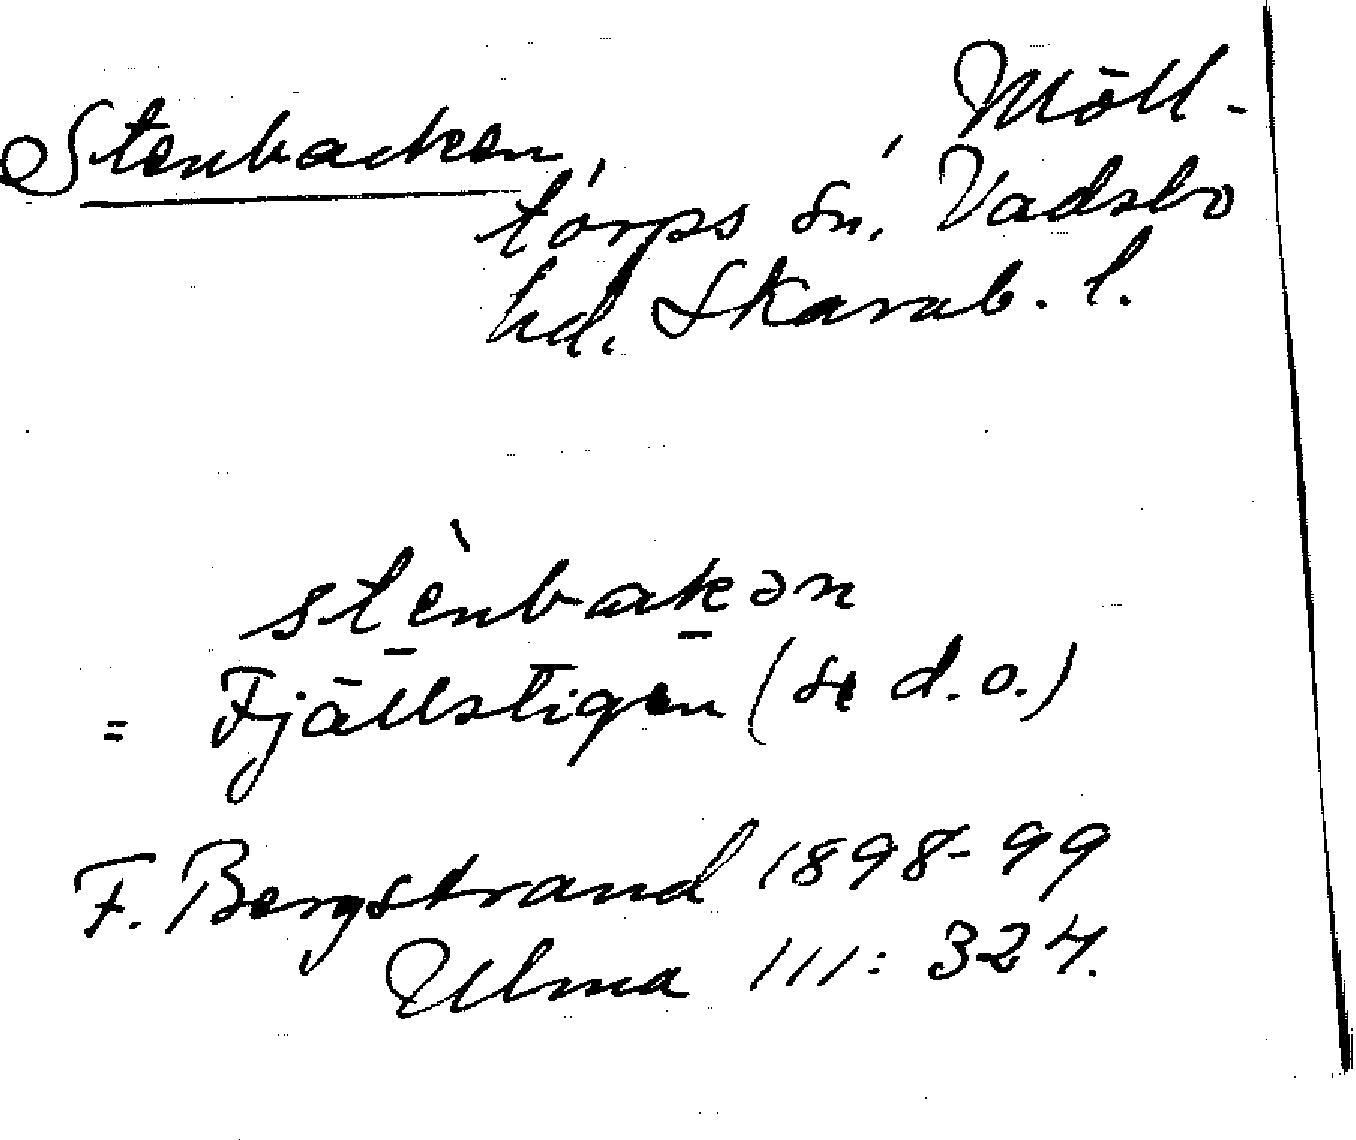 Stenbacken, , Möll-
torps sn, Vadsbo
hd. Skarab. l.
stènbakən
= Fjällstigen (se d.o.)
F. Bergstrand 1898-99
Ulma 111: 324.